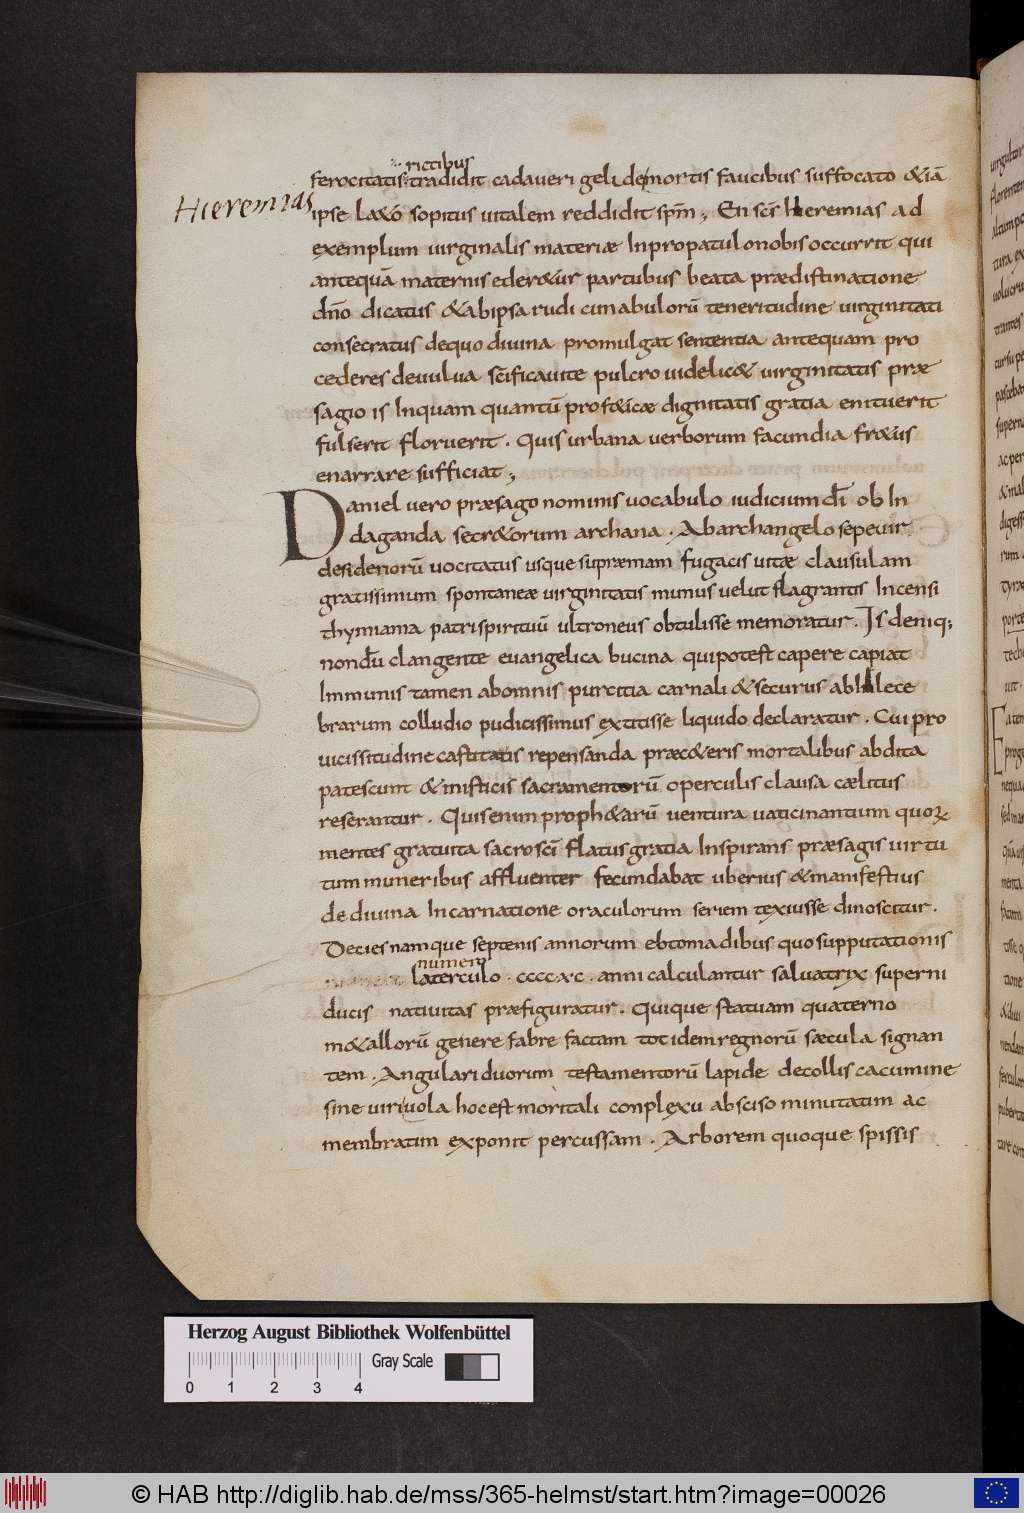 rictibus
ferocitatis tradidit cadaveri gelide mortis faucibus suffocato &iā
Hieremias
ipse laxo sopitus vitalem reddidit spm̄; En scs̄ hieremias ad
exemplum virginalis materiæ In propatulo nobis occurrit qui
antequā maternis eder&ur partubus beata prædistinatione
dn̄o dicatus & ab ipsa rudi cunabulorū teneritudine virginitati
consecratus de quo divina promulgat sententia antequam pro
cederes de vulva scīficavi te pulcro videlic& virginitatis præ
sagio is Inquam quantū prof&icæ dignitatis gratia enituerit
fulserit floruerit . Quis urbana verborum facundia fr&us
enarrare sufficiat;
Daniel vero præsago nominis vocabulo iudicium dī ob In
daganda secr&orum archana . Ab archangelo sepe vir
desideriorū vocitatus usque supræmam fugacis vitæ clausulam
gratissimum spontaneæ virginitatis munus velut flagrantis Incensi
thymiama patri spirituū ultroneus obtulisse memoratur . Is deniq;
nondū clangente euangelica bucina qui potest capere capiat
Immunis tamen ab omnis purcitia carnali & securus ab Inlece
brarum colludio pudicissimus extitisse liquido declaratur . Cui pro
vicissitudine castitatis repensanda præc&eris mortalibus abdita
patescunt & misticis sacramentorū operculis clausa cælitus
reserantur . Quis enim proph&arū ventura vaticinantium quoꝝ
mentes gratuita sacroscī flatus gratia Inspirans præsagis virtu
tum muneribus affluenter fecundabat uberius & manifestius
de divina Incarnatione oraculorum seriem texiusse dinoscitur .
Decies namque septenis annorum ebtomadibus quo supputationis
numero
laterculo . ccccxc . anni calculantur salvatrix superni
ducis nativitas præfiguratur . Quique statuam quaterno
m&allorū genere fabre factam totidem regnorū sæcula signan
tem . Angulari duorum testamentorū lapide de collis cacumine
sine viri vola hoc est moritali conplexu absciso minutatim ac
membratim exponit percussam . Arborem quoque spissis
Herzog August Bibliothek Wolfenbüttel
Gray Scale
0 1 2 3 4
© HAB http://diglib.hab.de/mss/365-helmst/start.htm?image=00026